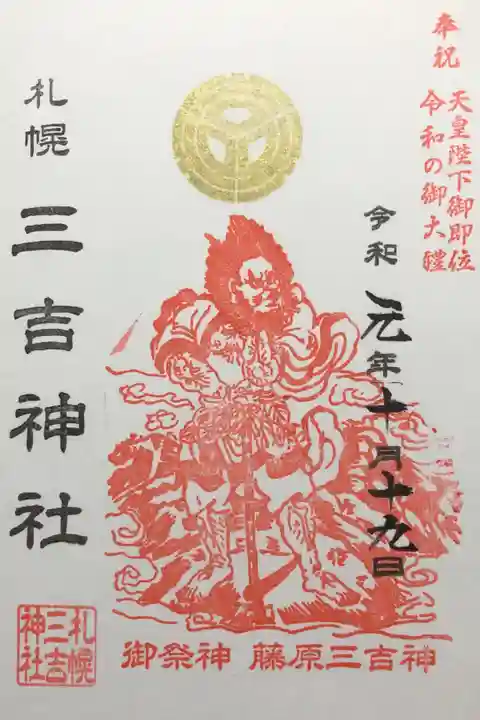 奉祝
天皇陛下御即位
令和の御大禮
令和元年十月十九日
札幌三吉神社
御祭神 藤原三吉神
札幌
三吉
神社